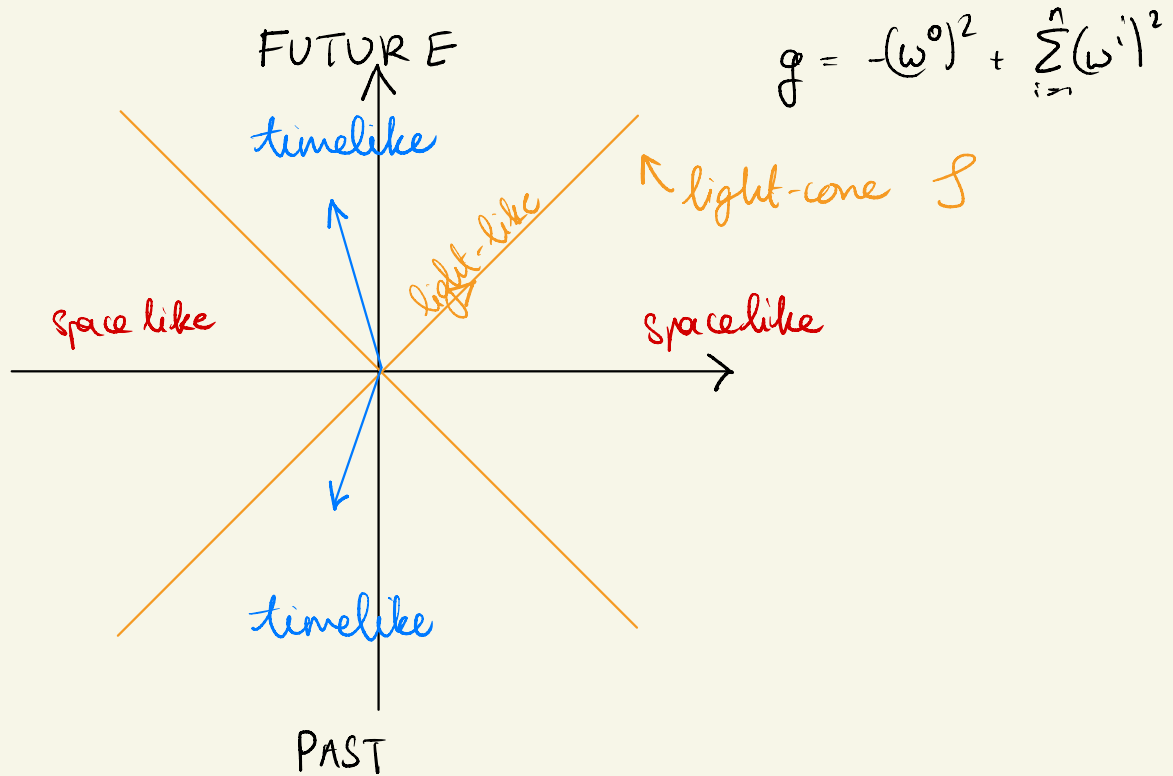 FUTURE
g = -(ω⁰)² + Σⁿᵢ₌₁(ωⁱ)²
timelike
light-cone S
light-like
spacelike
spacelike
timelike
PAST